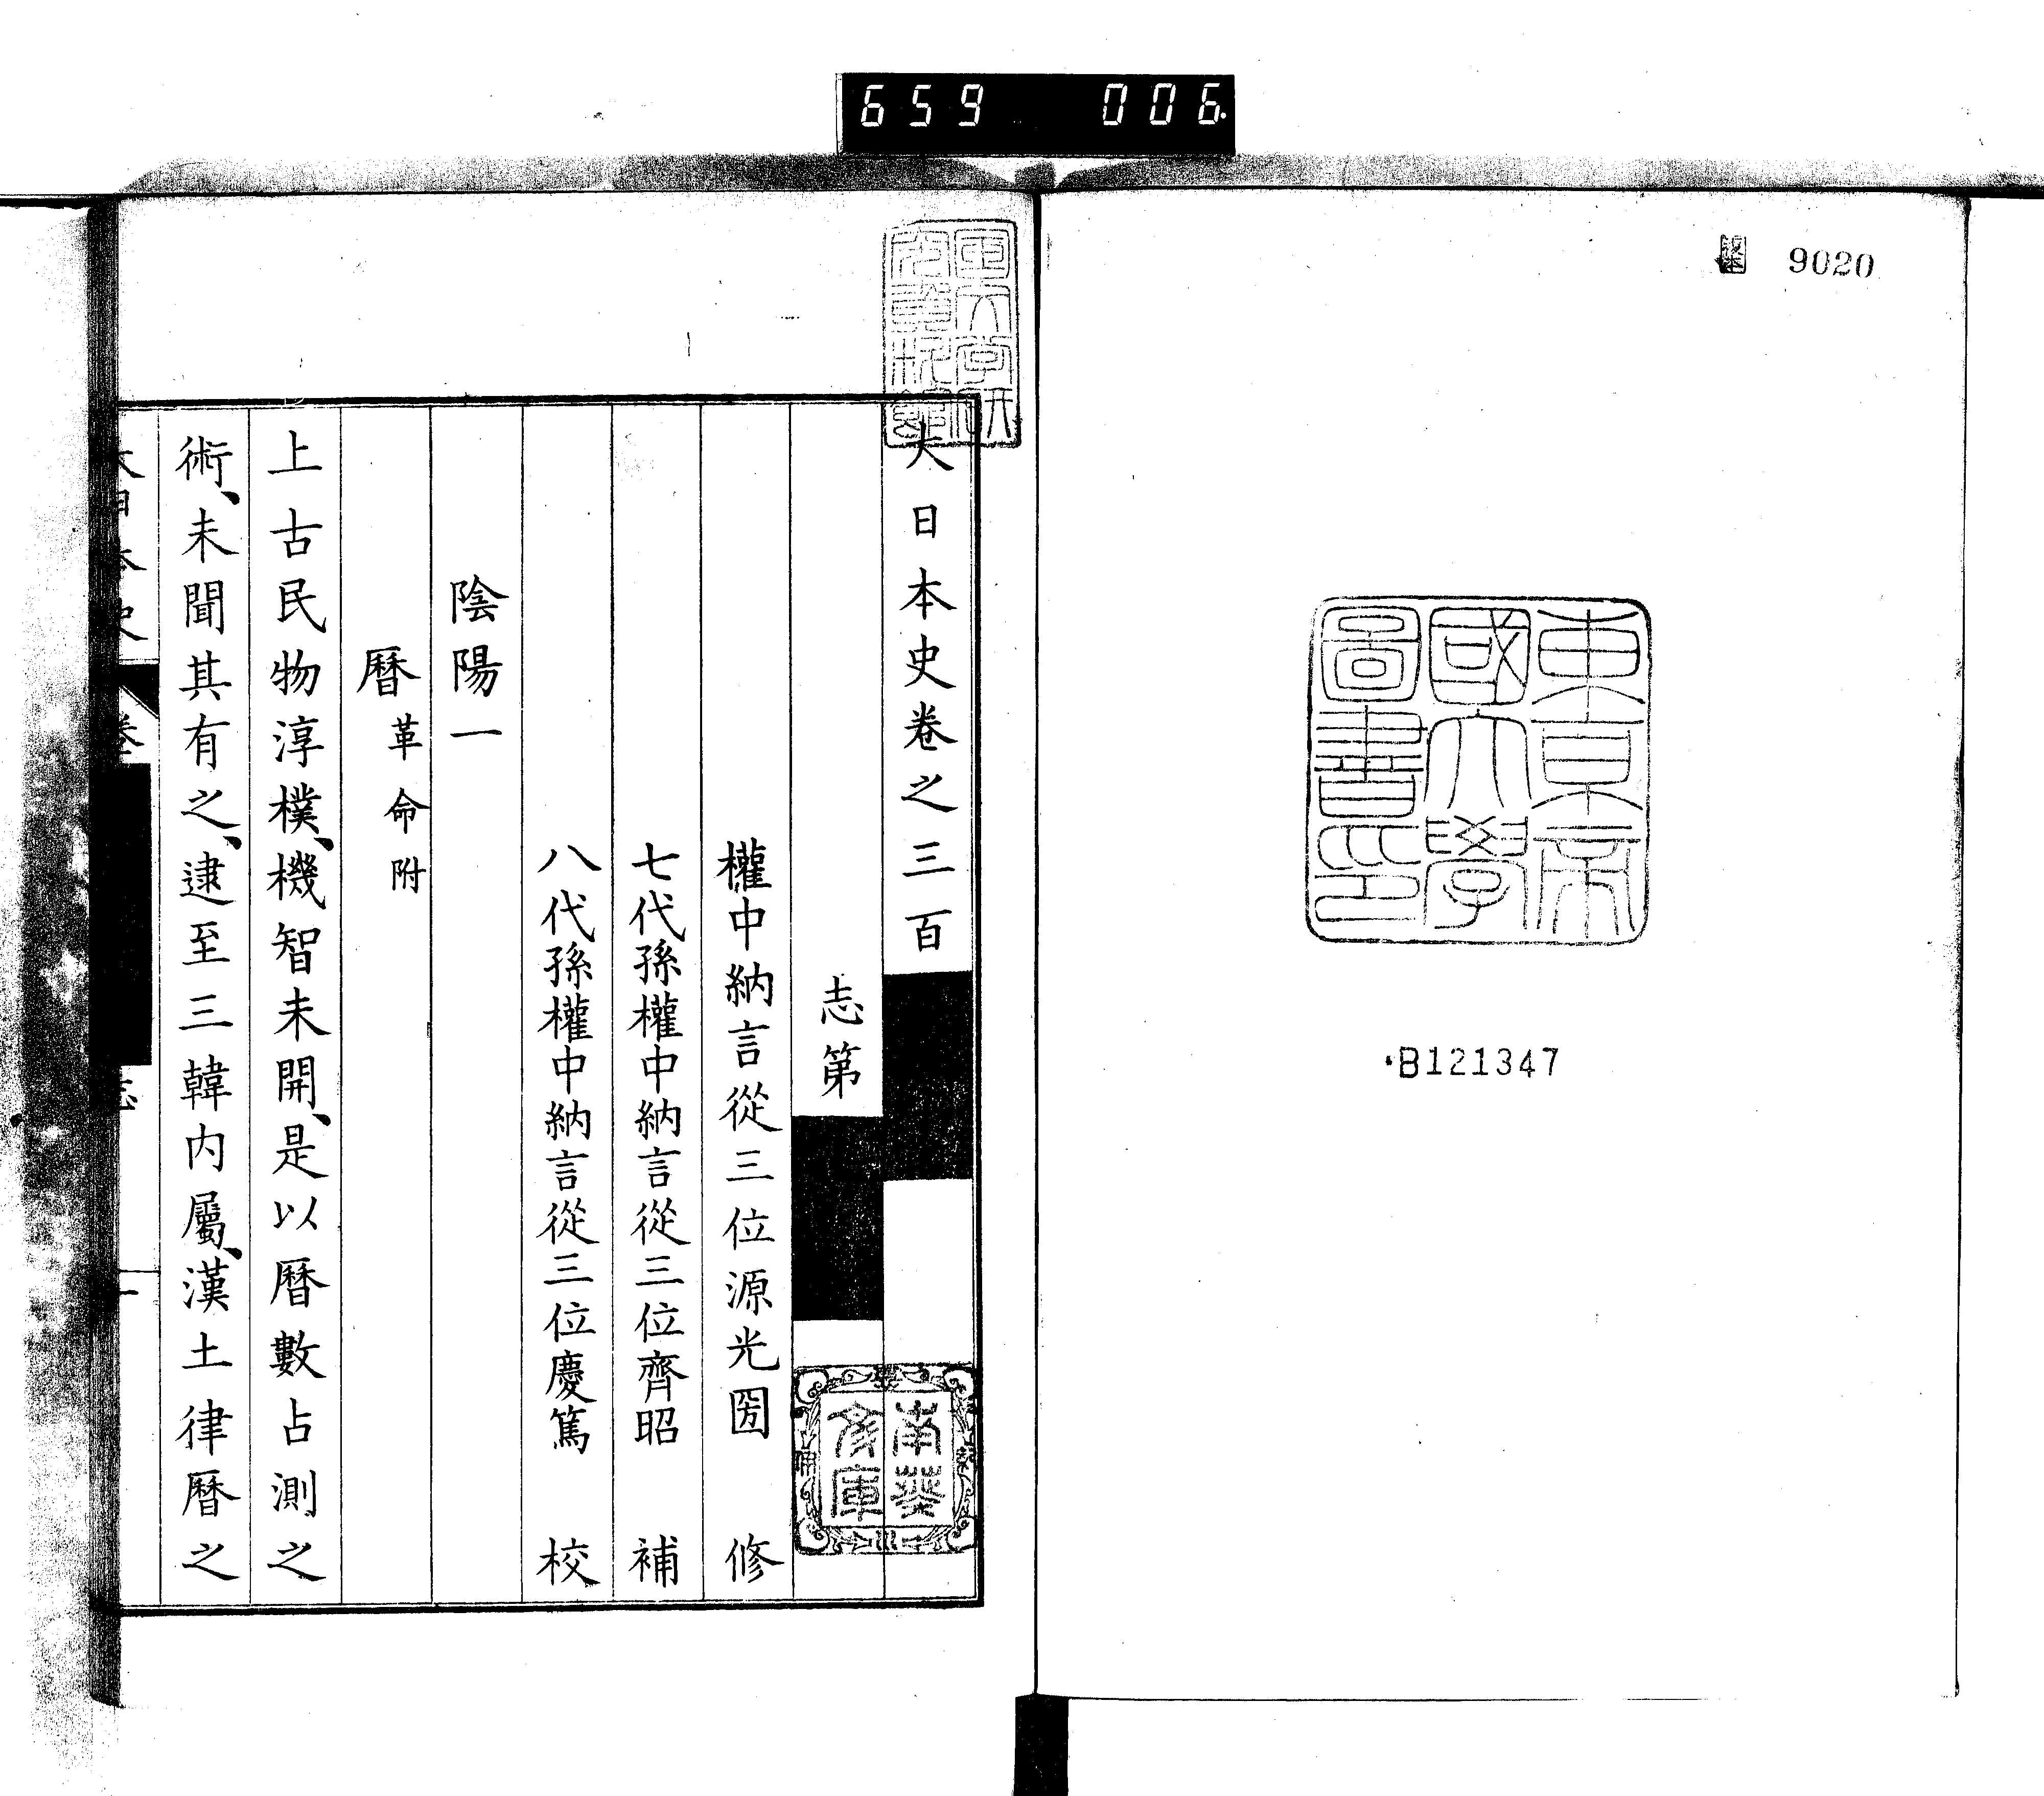 659 006
9020
東京帝
國大學
圖書印
B121347
大日本史卷之三百
志第
權中納言從三位源光圀 修
七代孫權中納言從三位齊昭 補
八代孫權中納言從三位慶篤 校
陰陽一
曆革命附
上古民物淳樸、機智未開、是以曆數占測之
術、未聞其有之、逮至三韓内屬、漢土律曆之
南葵
文庫